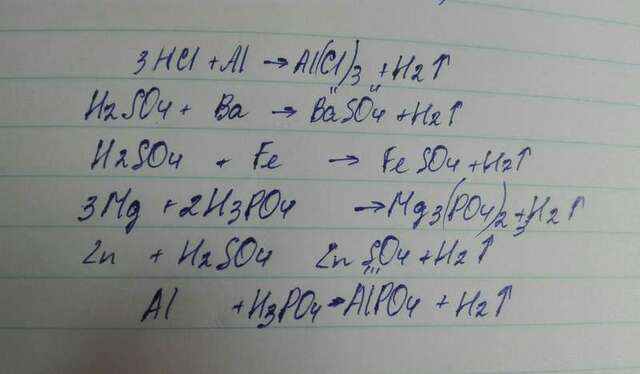 3HCl + Al → Al(Cl)3 + H2↑
H2SO4 + Ba → BaSO4 + H2↑
H2SO4 + Fe → FeSO4 + H2↑
3Mg + 2H3PO4 → Mg3(PO4)2 + 3H2↑
Zn + H2SO4 ZnSO4 + H2↑
Al + H3PO4 → AlPO4 + H2↑